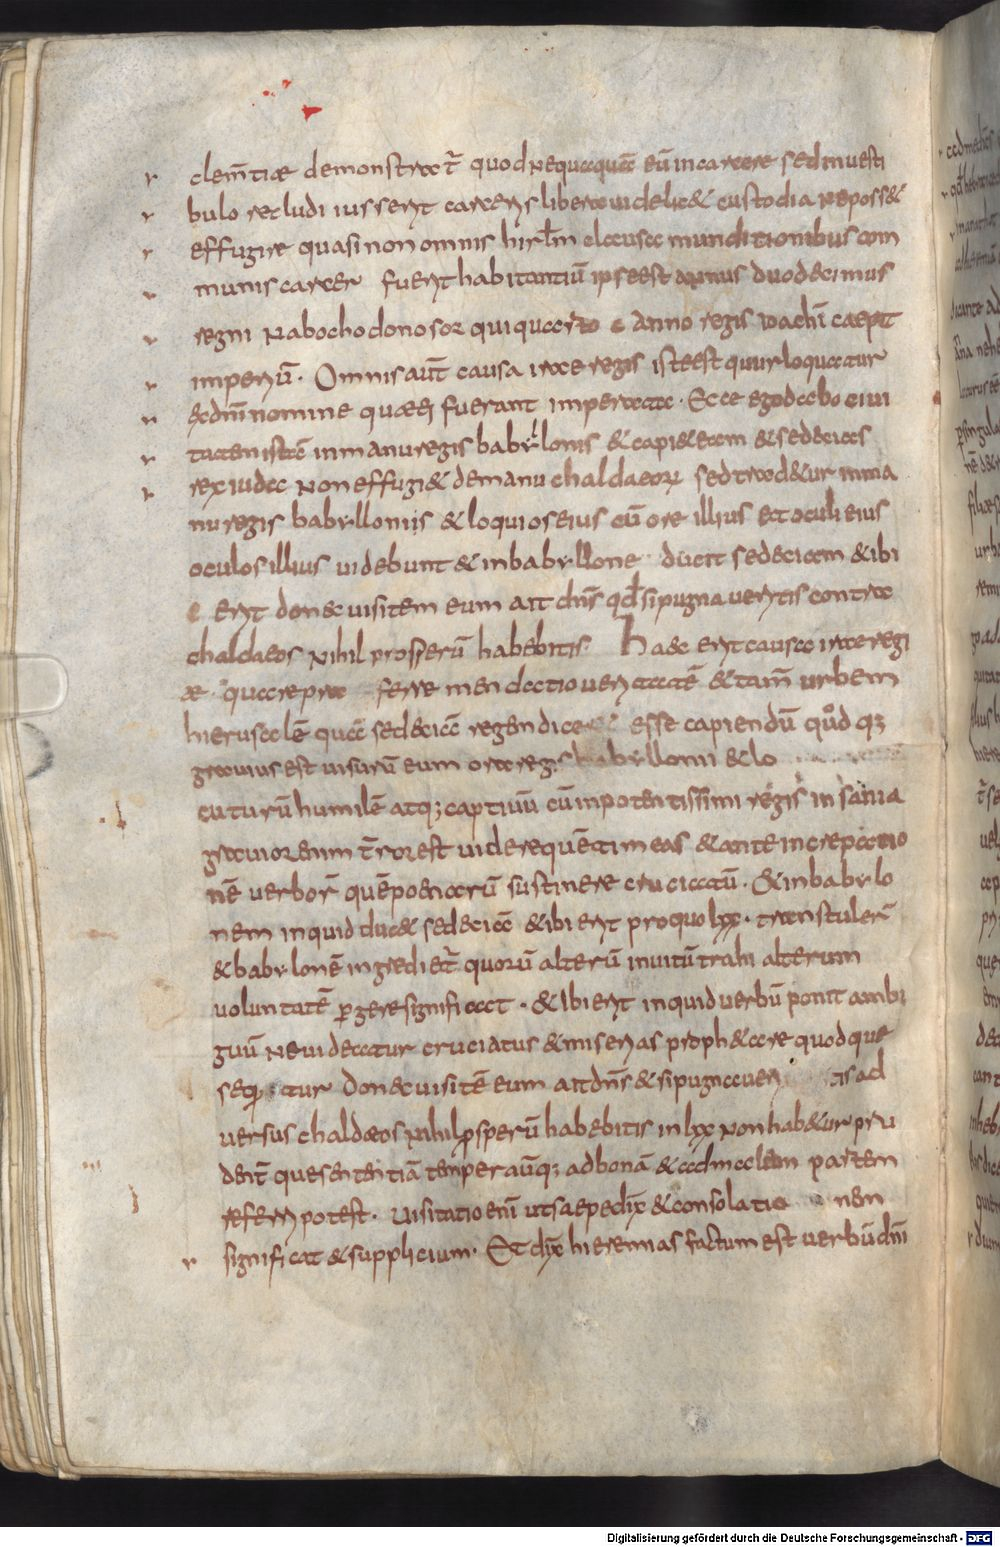 clem̄tiae demonstrat̄ quod nequaquā eū in carcere sed in uesti
bulo recludi iusserit carceris libera uidelic& custodia ne poss&
effugire quasi non omnis hirl̄m clausa munditionibus com
munis carcer fuerit habitantiū ipse est annus duodecimus
regni Nabochodonosor qui quarto anno regis ioachī caepit
imperiū. Omnis aūt causa irae regis ista est quur loquatur
& dn̄i nomine quae ei fuerant imperata. Ecce ego dabo ciui
tatem istā in manu regis babylonis & capi& eam & sedecias
rex iudae non effugi& de manu chaldaeorꝝ sed trad&ur in ma
nu regis babylloniis & loqui os eius cū ore illius et oculi eius
oculos illius uidebunt & in babyllone duc& sedeciam & ibi
erit donec uisitem eum ait dn̄s qd̄ si pugnaueritis contra
chaldaeos nihil prosperū habebitis. Haec erit causa irae regi
ae quare prae ferre men dactio ueritatē & tam̄ urbem
hierusalē quā sedeciā regem dice esse capiendū quod q;
grauius est uisurū eum ora regis babyllonii & lo
cuturū humilē atq; captiuū cū inpotentissimi regis insania
grauior enim t̄ror est uidere quē timeas & ante increpatio
nē uerbor̄ quē poenarū sustinere cruciatū. & in babylo
nem inquid duc& sedeciā & ibi erit pro quo lxx. transtuler̄
& babylonē ingrediet̄ quorū alterū inuitū trahi alterum
uoluntatē ꝑgere significat. & Ibi erit inquid uerbū ponit ambi
guū ne uideatur cruciatus & miserias proph&are quod que
seq; tur donec uisitē eum ait dn̄s & si pugnaueri is ad
uersus chaldaeos nihil ꝓsperū habebitis in lxx non hab&ur pru
dent̄ que sententiā temperauīq; ad bonā & ad malam partem
referri potest. uisitatio enī ut saepe dix̄ & consolatio nem
significat & supplicium. Et dix̄ hieremias factum est uerbū dn̄i
Digitalisierung gefördert durch die Deutsche Forschungsgemeinschaft - DFG